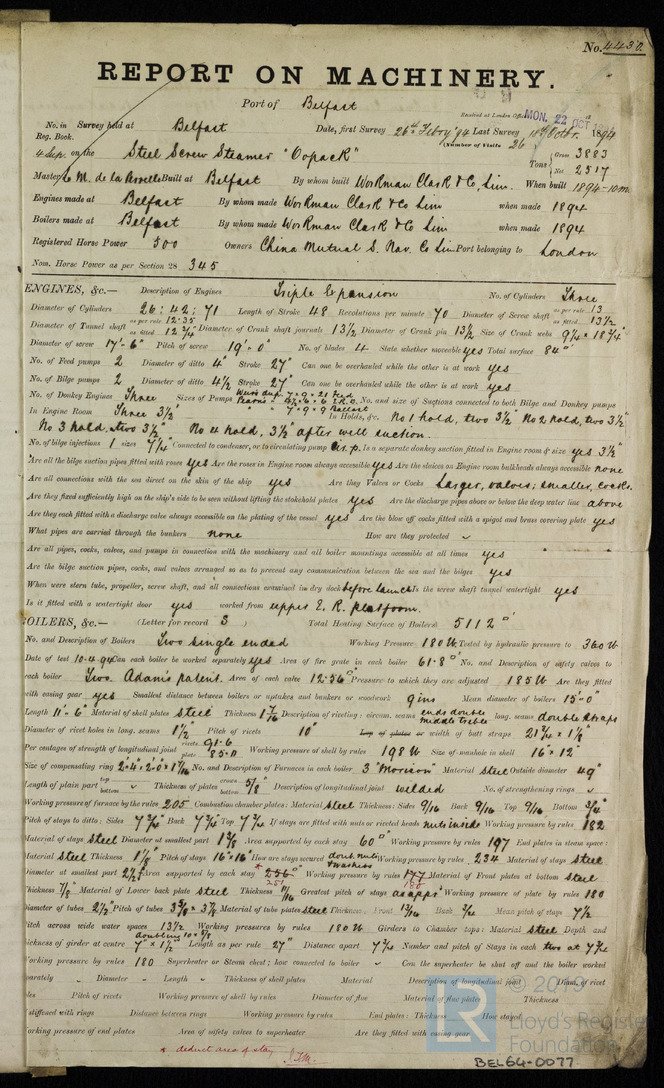 No. 4430.
REPORT ON MACHINERY.
Port of Belfast
Received at London Office MON. 22 OCT
No. in Survey held at Belfast Date, first Survey 26th Febry '94 Last Survey Octr. 1894
Reg. Book. (Number of Visits 26
4 Sup. on the Steel Screw Steamer "Oopack" Tons Gross 3883 Net 2517
Master C. M. de la Perrelle Built at Belfast By whom built Workman Clark & Co, Lim. When built 1894-10m
Engines made at Belfast By whom made Workman Clark & Co Lim when made 1894
Boilers made at Belfast By whom made Workman Clark & Co Lim when made 1894
Registered Horse Power 500 Owners China Mutual S. Nav. Co Lim Port belonging to London
Nom. Horse Power as per Section 28 345
ENGINES, &c.— Description of Engines Triple Expansion No. of Cylinders Three
Diameter of Cylinders 26 : 42 : 71 Length of Stroke 48 Revolutions per minute 70 Diameter of Screw shaft as per rule 13 as fitted 13½
Diameter of Tunnel shaft as per rule 12.35 as fitted 12¾ Diameter of Crank shaft journals 13½ Diameter of Crank pin 13½ Size of Crank webs 9¼ × 18¾
Diameter of screw 17'-6" Pitch of screw 19'-0" No. of blades 4 State whether moveable yes Total surface 84
No. of Feed pumps 2 Diameter of ditto 4" Stroke 27" Can one be overhauled while the other is at work yes
No. of Bilge pumps 2 Diameter of ditto 4½ Stroke 27" Can one be overhauled while the other is at work yes
No. of Donkey Engines Three Sizes of Pumps 7 × 9 × 21 Feed No. and size of Suctions connected to both Bilge and Donkey pumps
In Engine Room Three 3½ 7 × 9 × 9 Ballast In Holds, &c. No 1 hold, two 3½ No 2 hold, two 3½
No 3 hold, two 3½" No 4 hold, 3½" after well suction.
No. of bilge injections 1 sizes 7¼ Connected to condenser, or to circulating pump cir. p. Is a separate donkey suction fitted in Engine room & size yes 3½
Are all the bilge suction pipes fitted with roses yes Are the roses in Engine room always accessible yes Are the sluices on Engine room bulkheads always accessible none
Are all connections with the sea direct on the skin of the ship yes Are they Valves or Cocks Larger, valves; smaller, cocks.
Are they fixed sufficiently high on the ship's side to be seen without lifting the stokehold plates yes Are the discharge pipes above or below the deep water line above
Are they each fitted with a discharge valve always accessible on the plating of the vessel yes Are the blow off cocks fitted with a spigot and brass covering plate yes
What pipes are carried through the bunkers none How are they protected
Are all pipes, cocks, valves, and pumps in connection with the machinery and all boiler mountings accessible at all times yes
Are the bilge suction pipes, cocks, and valves arranged so as to prevent any communication between the sea and the bilges yes
When were stern tube, propeller, screw shaft, and all connections examined in dry dock before launch Is the screw shaft tunnel watertight yes
Is it fitted with a watertight door yes worked from upper E. R. platform.
OILERS, &c.— (Letter for record S ) Total Heating Surface of Boilers 5112
No. and Description of Boilers Two single ended Working Pressure 180 lb Tested by hydraulic pressure to 360 lb
Date of test 10.4.94 Can each boiler be worked separately yes Area of fire grate in each boiler 61.8 No. and Description of safety valves to
each boiler Two Adams patent. Area of each valve 12.56 Pressure to which they are adjusted 185 lb Are they fitted
with easing gear yes Smallest distance between boilers or uptakes and bunkers or woodwork 9 ins Mean diameter of boilers 15'-0"
Length 11'-6" Material of shell plates steel Thickness 1 7/16 Description of riveting: circum. seams ends double middle treble long. seams double straps
Diameter of rivet holes in long. seams 1½ Pitch of rivets 10" Lap of plates or width of butt straps 21¾ × 1⅛
Per centages of strength of longitudinal joint rivets 91.6 plate 85.0 Working pressure of shell by rules 198 lb Size of manhole in shell 16" × 12"
Size of compensating ring 2'.4" × 2'.0" × 1 7/16 No. and Description of Furnaces in each boiler 3 "Morison" Material steel Outside diameter 49"
Length of plain part top bottom Thickness of plates crown bottom ⅝" Description of longitudinal joint welded No. of strengthening rings
Working pressure of furnace by the rules 205 Combustion chamber plates: Material steel Thickness: Sides 9/16 Back 9/16 Top 9/16 Bottom ¾"
Pitch of stays to ditto: Sides 7¾ Back 7¾ Top 7¾ If stays are fitted with nuts or riveted heads nuts inside Working pressure by rules 182
Material of stays steel Diameter at smallest part 1⅜ Area supported by each stay 60 Working pressure by rules 197 End plates in steam space:
Material steel Thickness 1⅛ Pitch of stays 16" × 16" How are stays secured doub. nuts & washers Working pressure by rules 234 Material of stays steel
Diameter at smallest part 2½ Area supported by each stay 256 251 Working pressure by rules 177 180 Material of Front plates at bottom steel
Thickness ⅞ Material of Lower back plate steel Thickness 11/16 Greatest pitch of stays as appd Working pressure of plate by rules 180
Diameter of tubes 2½" Pitch of tubes 3⅝ × 3⅞ Material of tube plates steel Thickness: Front 13/16 Back ¾ Mean pitch of stays 7½
Pitch across wide water spaces 13½ Working pressures by rules 180 lb Girders to Chamber tops: Material steel Depth and
thickness of girder at centre doubling 10 × ⅝ 7" × 1½" Length as per rule 27" Distance apart 7¾ Number and pitch of Stays in each two at 7¾
Working pressure by rules 180 Superheater or Steam chest; how connected to boiler Can the superheater be shut off and the boiler worked
parately Diameter Length Thickness of shell plates Material Description of longitudinal joint Diam. of rivet
les Pitch of rivets Working pressure of shell by rules Diameter of flue Material of flue plates Thickness
stiffened with rings Distance between rings Working pressure by rules End plates: Thickness How stayed
orking pressure of end plates Area of safety valves to superheater Are they fitted with easing gear
* deduct area of stay
© 2019
Lloyd's Register
Foundation
LR
BEL64-0077